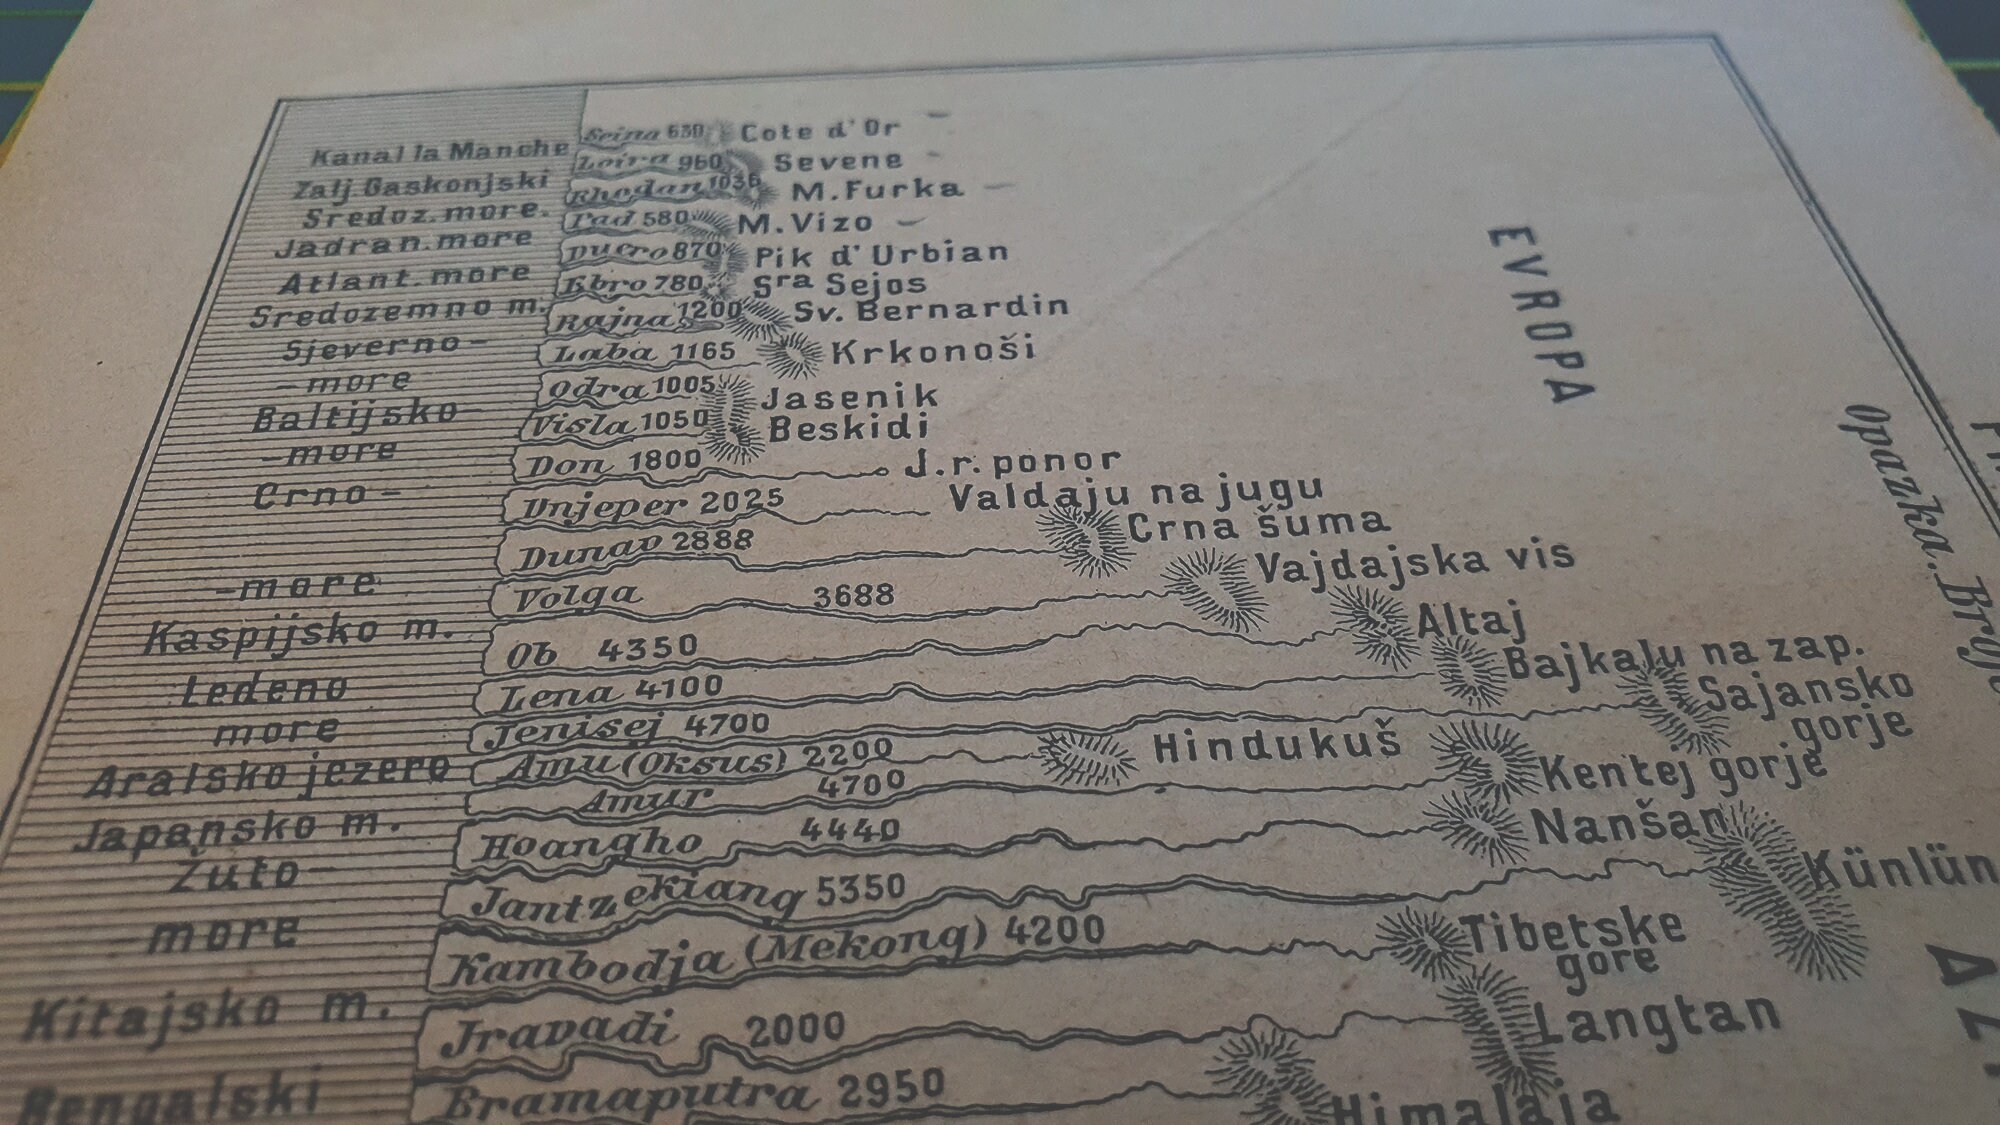 Kanal la Manche
Seina 630 Cote d'Or
Zalj. Gaskonjski
Loira 960 Sevene
Sredoz. more.
Rhodan 1036 M. Furka
Jadran. more
Pad 580 M. Vizo
Atlant. more
Duero 870 Pik d'Urbian
Sredozemno m.
Ebro 780 Sra Sejos
Sjeverno-
Rajna 1200 Sv. Bernardin
-more
Laba 1165 Krkonoši
Baltijsko-
Odra 1005 Jasenik
-more
Visla 1050 Beskidi
Crno-
Don 1800 J.r. ponor
Dnjeper 2025 Valdaju na jugu
-more
Dunav 2888 Crna šuma
Kaspijsko m.
Volga 3688 Vajdajska vis
Ledeno
Ob 4350 Altaj
more
Lena 4100 Bajkalu na zap.
Jenisej 4700 Sajansko
gorje
Aralsko jezero
Amu (Oksus) 2200 Hindukuš
Japansko m.
Amur 4700 Kentej gorje
Žuto-
Hoangho 4440 Nanšan
-more
Jantzekiang 5350 Künlün
Kitajsko m.
Kambodja (Mekong) 4200 Tibetske
gore
Bengalski
Jravadi 2000 Langtan
Bramaputra 2950 Himalaja
EVROPA
Opazka.